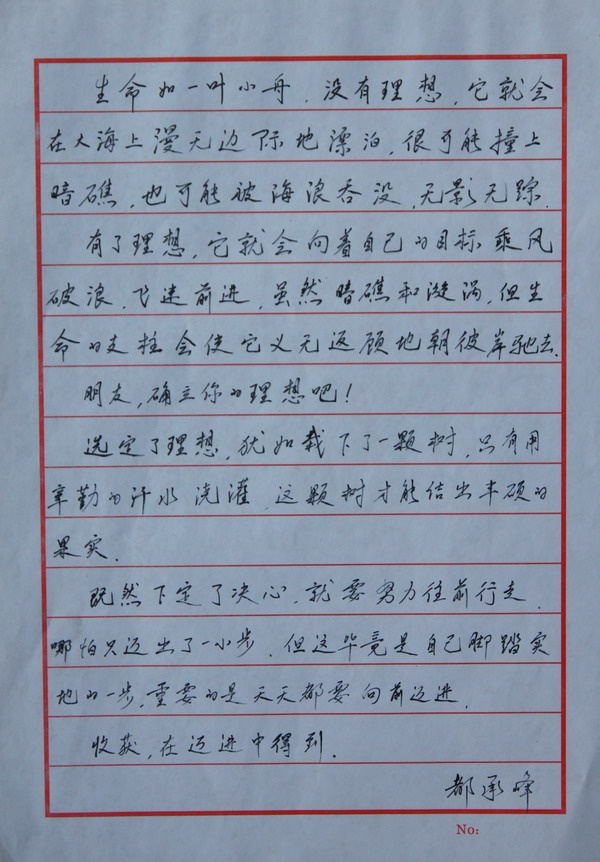 生命如一叶小舟,没有理想,它就会
在大海上漫无边际地漂泊,很可能撞上
暗礁,也可能被海浪吞没,无影无踪.
有了理想,它就会向着自己的目标乘风
破浪,飞速前进,虽然暗礁和漩涡,但生
命的支柱会使它义无返顾地朝彼岸驰去.
朋友,确立你的理想吧!
选定了理想,犹如栽下了一颗树,只有用
辛勤的汗水浇灌,这颗树才能结出丰硕的
果实.
既然下定了决心,就要努力往前行走,
哪怕只迈出了一小步,但这毕竟是自己脚踏实
地的一步,重要的是天天都要向前迈进.
收获,在迈进中得到.
都承峰
No: